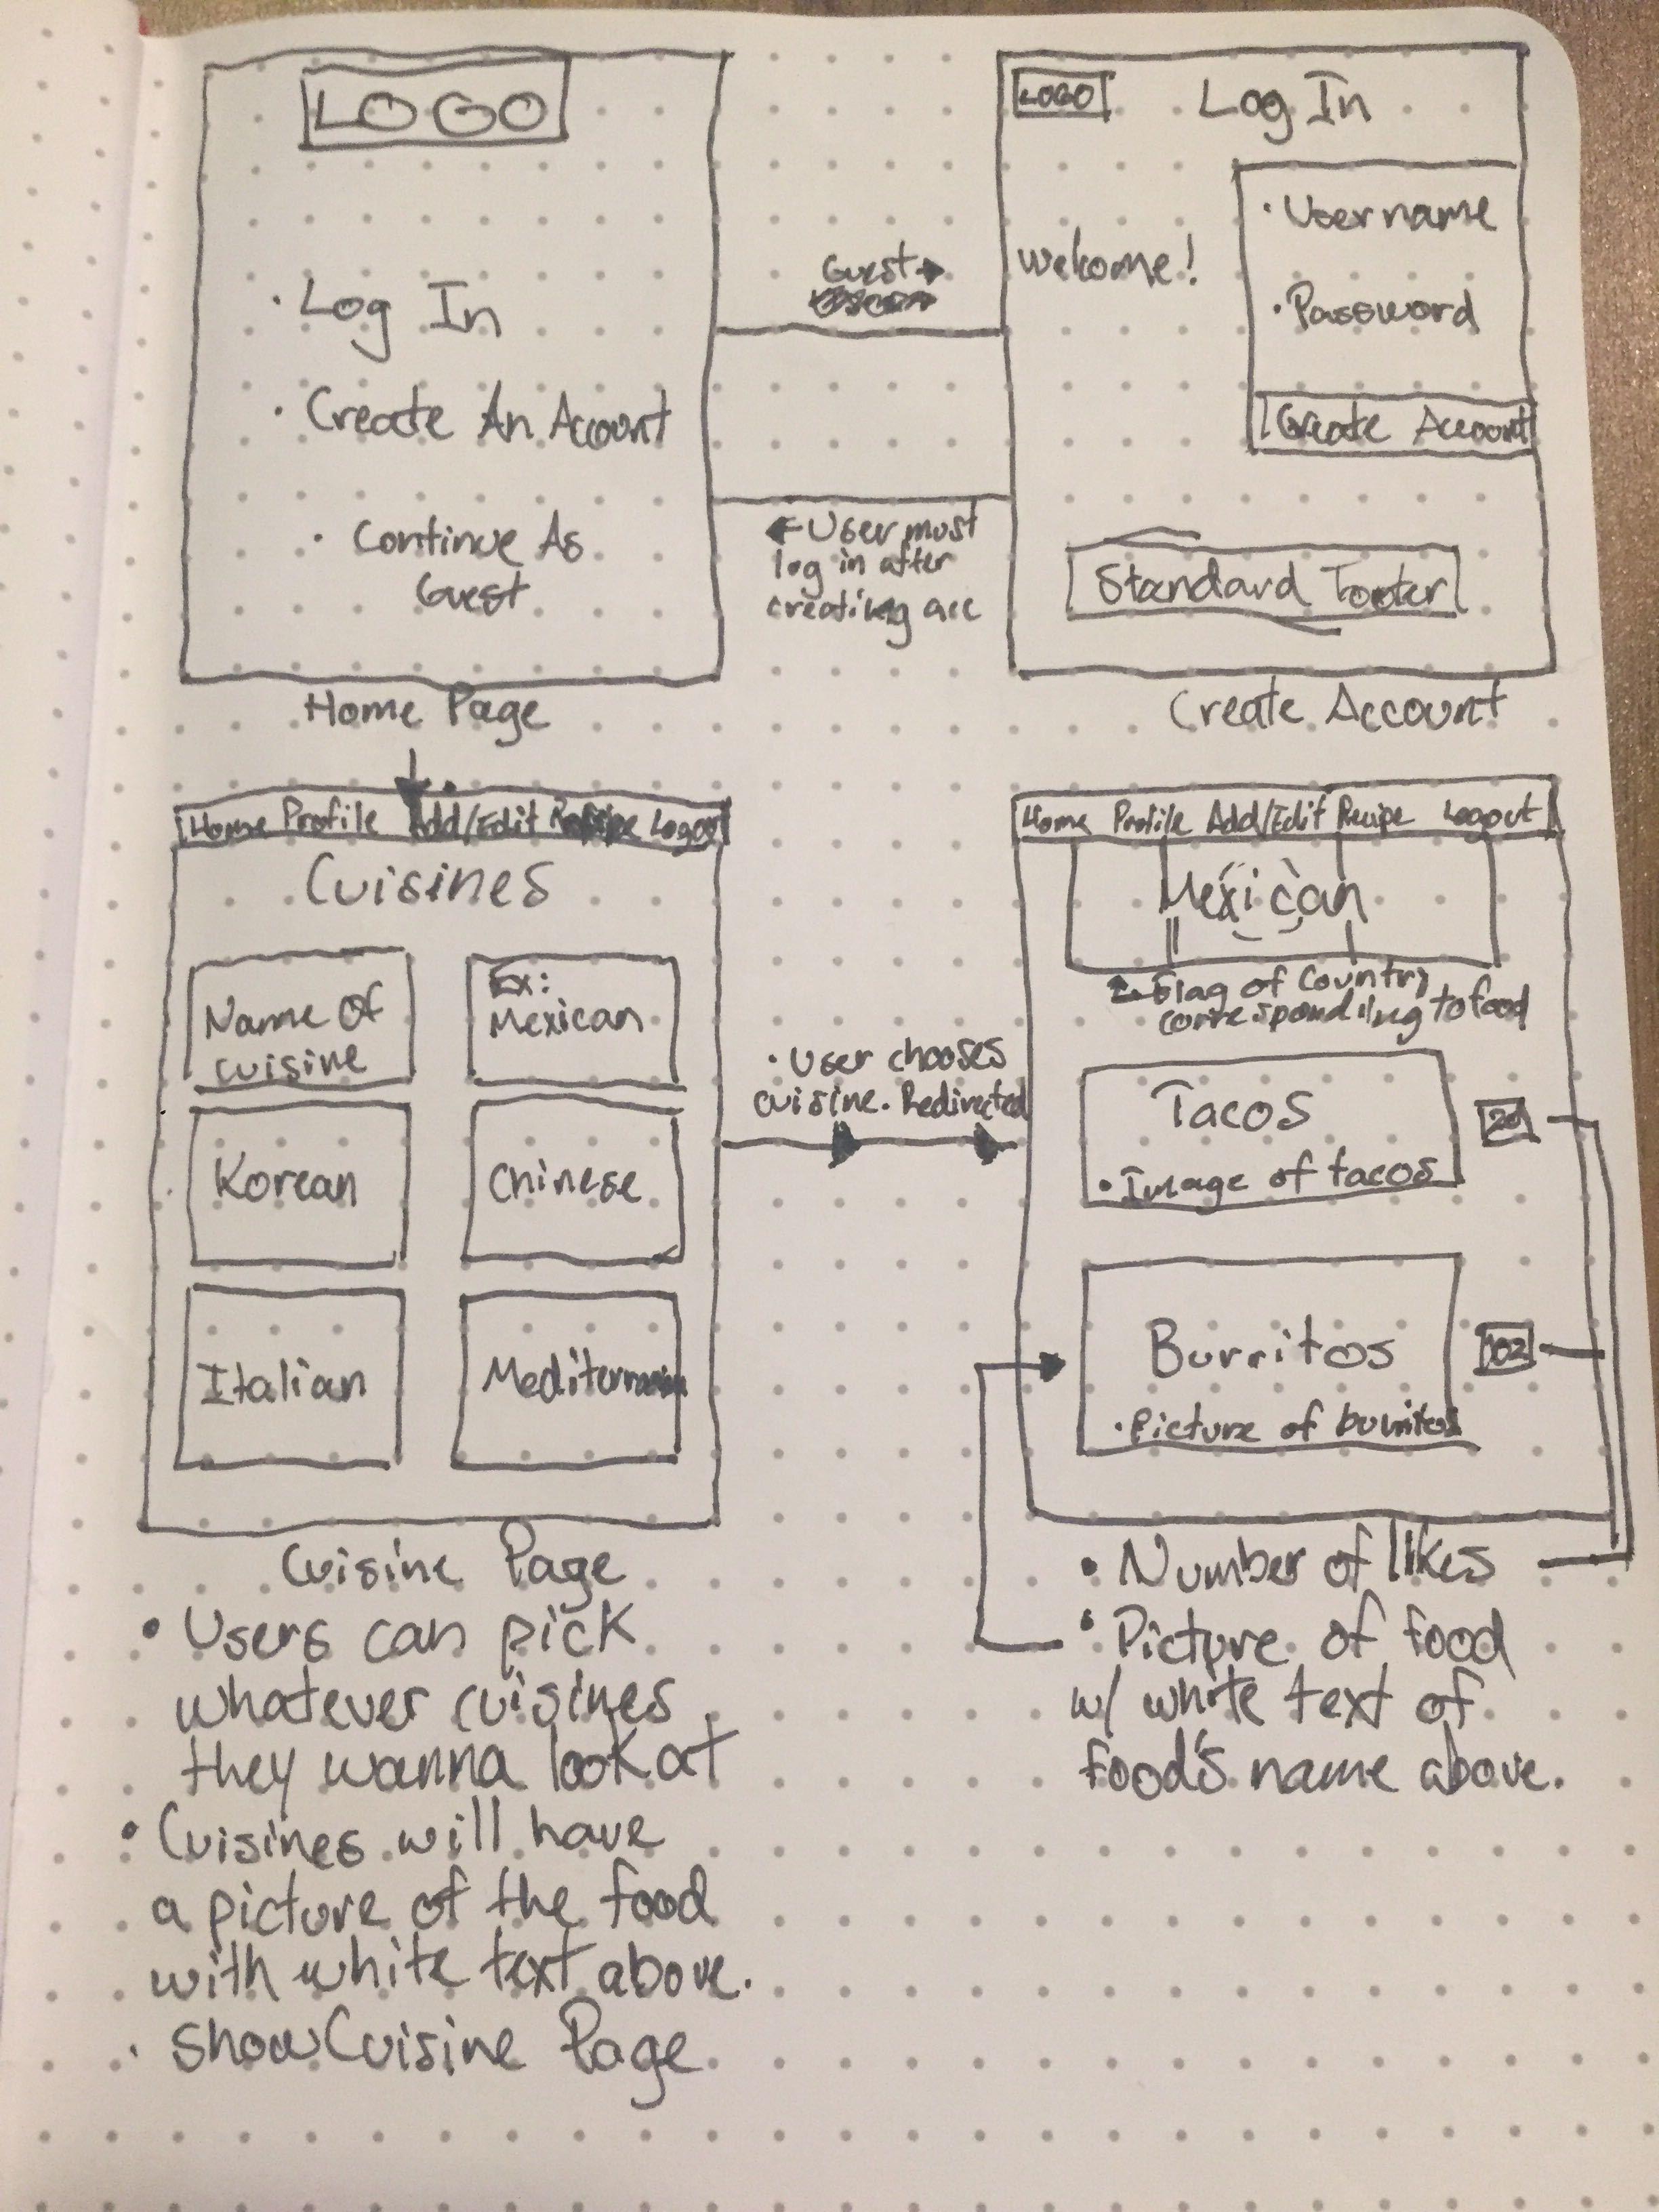 LOGO
• Log In
• Create An Account
• Continue As
Guest
Home Page
Guest →
← User must
log in after
creating acc
LOGO
Log In
Welcome!
• Username
• Password
Create Account
Standard Footer
Create Account
Home Profile Add/Edit Recipe Logout
Cuisines
Name Of
cuisine
Ex:
Mexican
Korean
Chinese
Italian
Mediterranean
Cuisine Page
• Users can pick
whatever cuisines
they wanna look at
• Cuisines will have
a picture of the food
with white text above.
• Show Cuisine Page
• User chooses
cuisine. Redirected
Home Profile Add/Edit Recipe Logout
Mexican
Flag of Country
corresponding to food
Tacos
• Image of tacos
Burritos
• Picture of burritos
102
• Number of likes
• Picture of food
w/ white text of
food's name above.